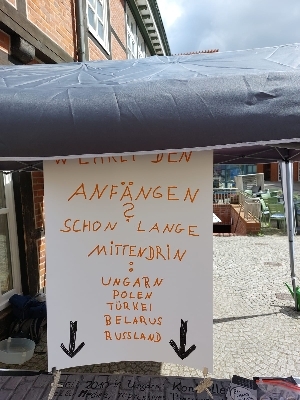 WEHRET DEN
ANFÄNGEN
?
SCHON LANGE
MITTENDRIN
:
UNGARN
POLEN
TÜRKEI
BELARUS
RUSSLAND